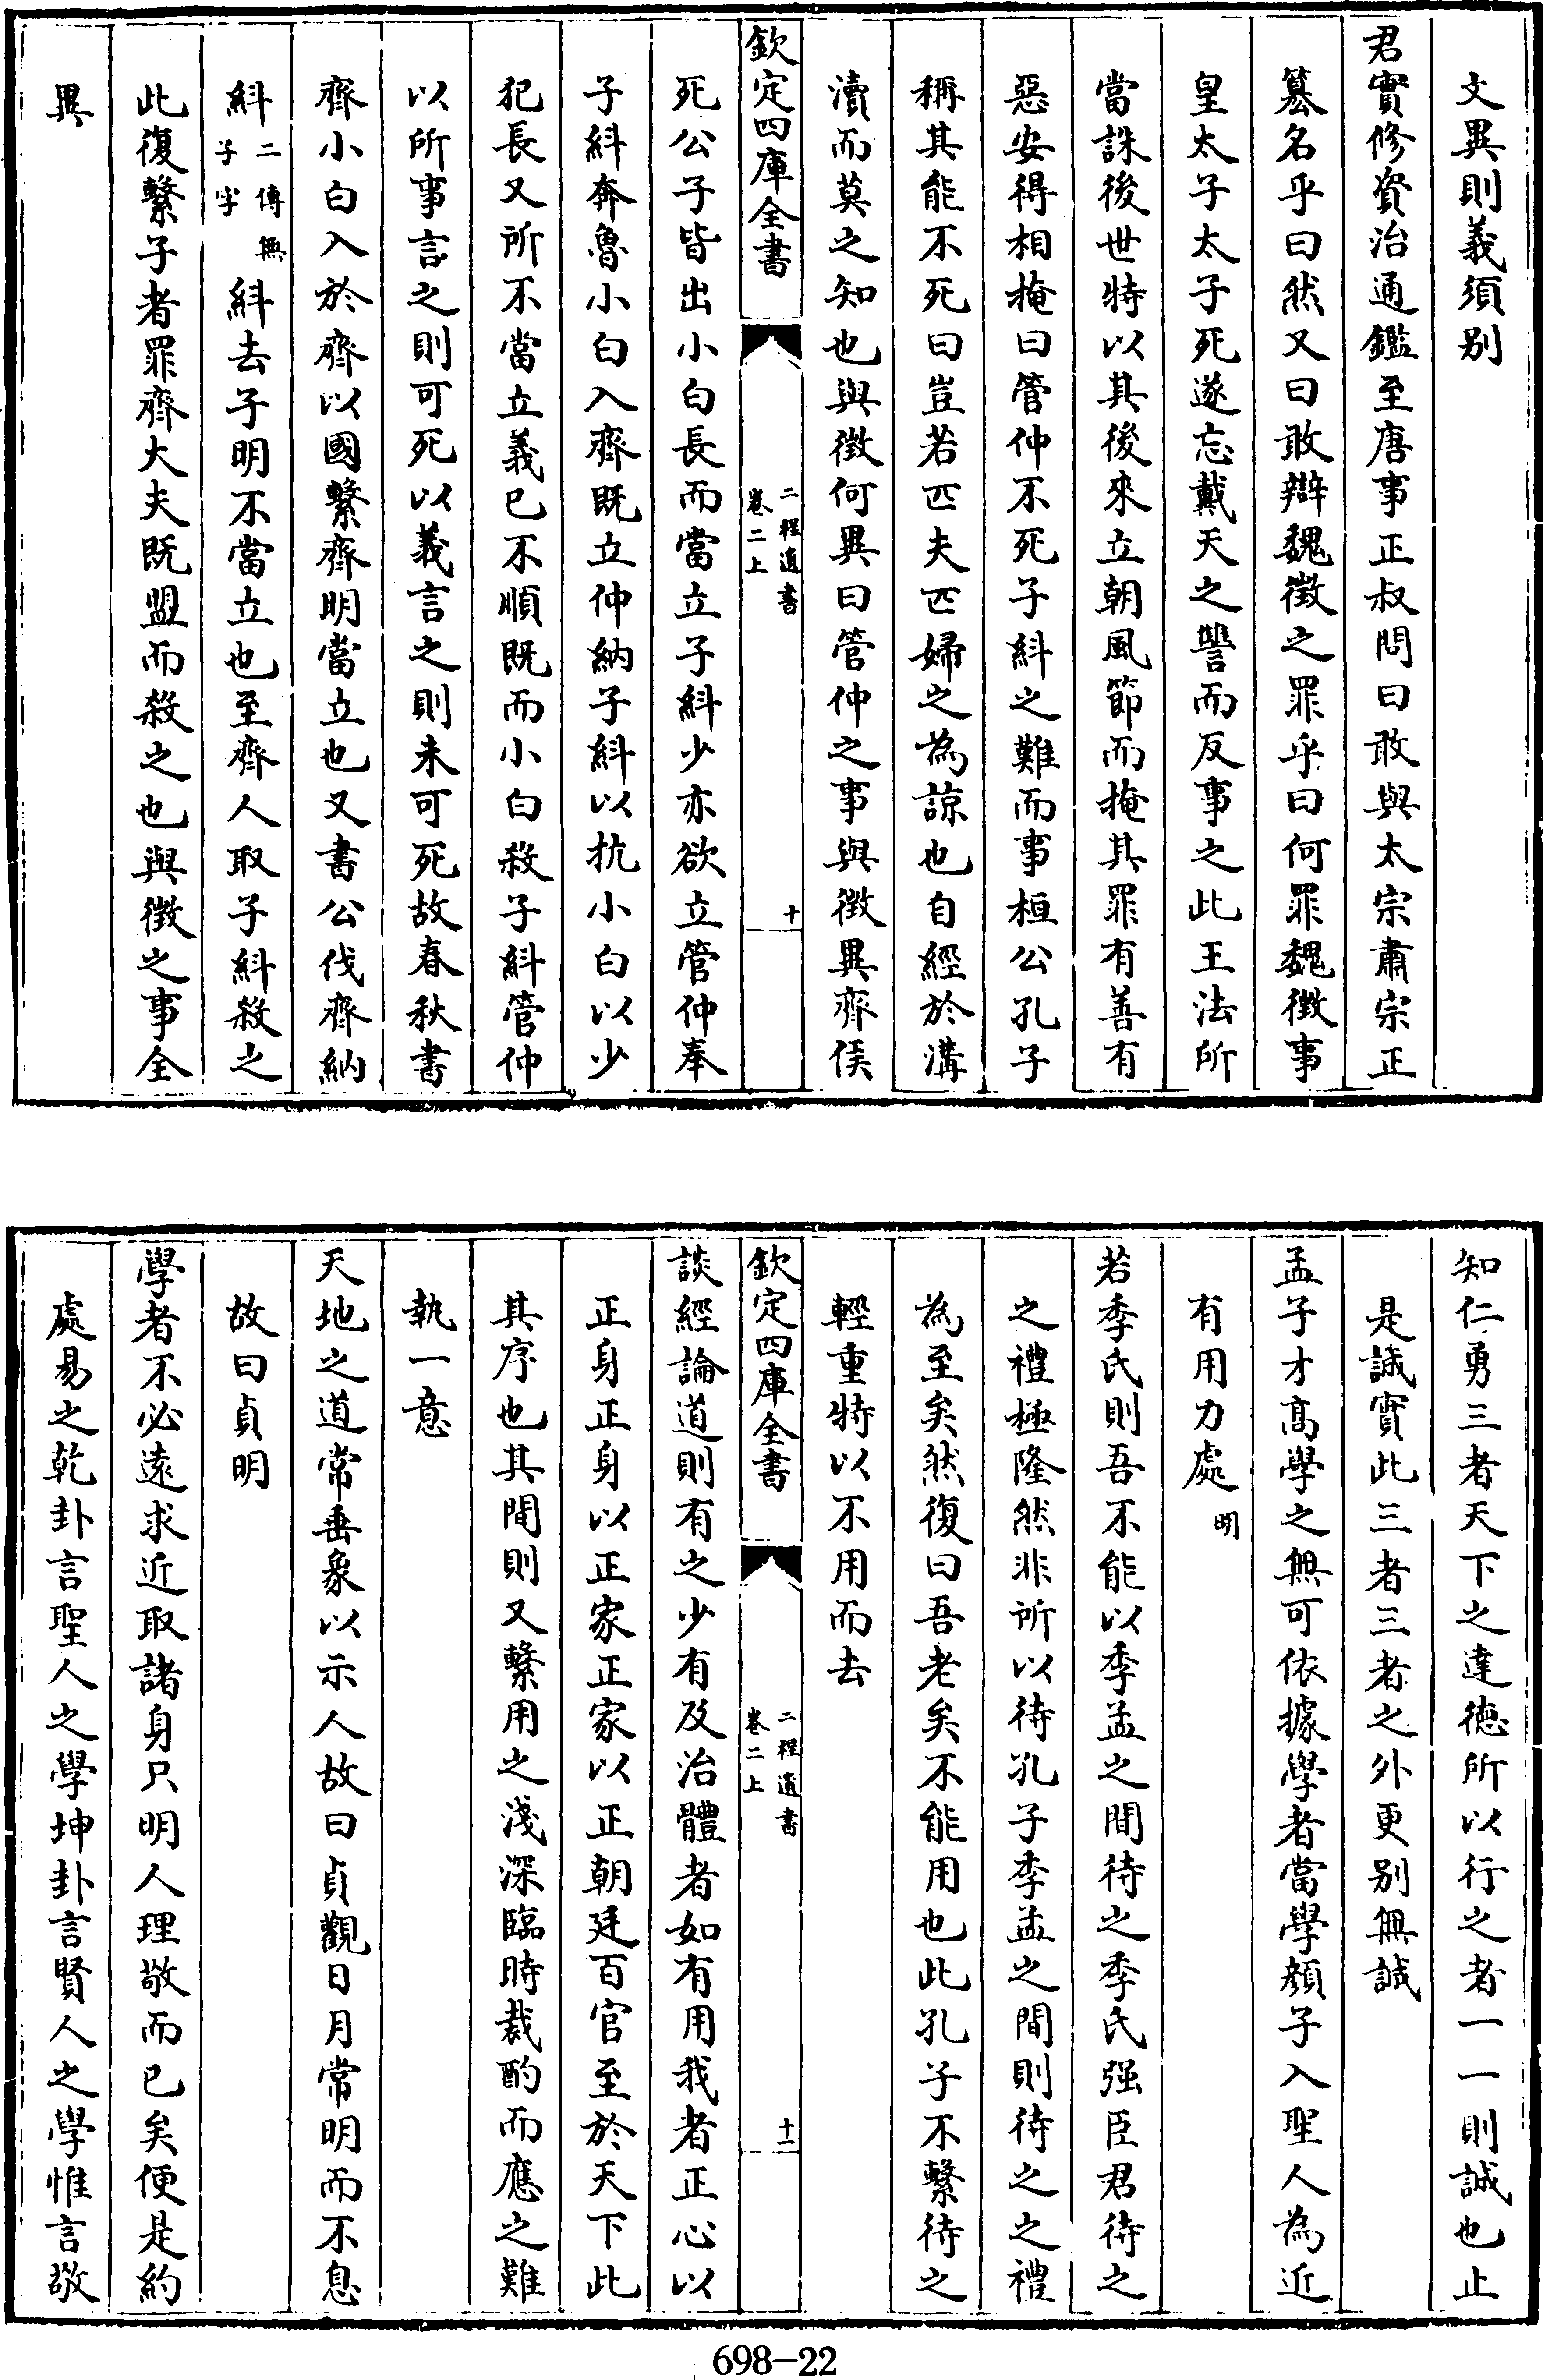 文異則義須别
君實修資治通鑑至唐事正叔問曰敢與太宗肅宗正
簒名乎曰然又曰敢辯魏徵之罪乎曰何罪魏徵事
皇太子太子死遂忘戴天之讐而反事之此王法所
當誅後世特以其後來立朝風節而掩其罪有善有
惡安得相掩曰管仲不死子糾之難而事桓公孔子
稱其能不死曰豈若匹夫匹婦之為諒也自經於溝
瀆而莫之知也與徵何異曰管仲之事與徵異齊侯
欽定四庫全書
二程遺書
卷二上
十
死公子皆出小白長而當立子糾少亦欲立管仲奉
子糾奔魯小白入齊既立仲納子糾以抗小白以少
犯長又所不當立義已不順既而小白殺子糾管仲
以所事言之則可死以義言之則未可死故春秋書
齊小白入於齊以國繫齊明當立也又書公伐齊納
糾二傳無子字糾去子明不當立也至齊人取子糾殺之
此復繫子者罪齊大夫既盟而殺之也與徵之事全
異
知仁勇三者天下之達德所以行之者一一則誠也止
是誠實此三者三者之外更别無誠
孟子才高學之無可依據學者當學顔子入聖人為近
有用力處明
若季氏則吾不能以季孟之間待之季氏强臣君待之
之禮極隆然非所以待孔子季孟之間則待之之禮
為至矣然復曰吾老矣不能用也此孔子不繫待之
輕重特以不用而去
欽定四庫全書
二程遺書
卷二上
十一
談經論道則有之少有及治體者如有用我者正心以
正身正身以正家正家以正朝廷百官至於天下此
其序也其間則又繫用之淺深臨時裁酌而應之難
執一意
天地之道常垂象以示人故曰貞觀日月常明而不息
故曰貞明
學者不必遠求近取諸身只明人理敬而已矣便是約
處易之乾卦言聖人之學坤卦言賢人之學惟言敬
698-22